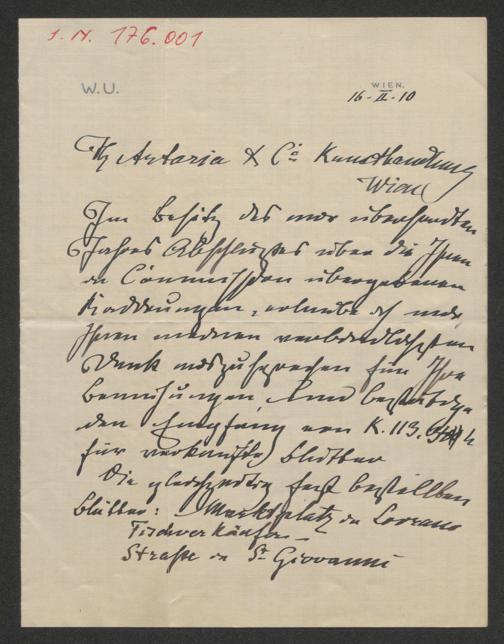 I. N. 176.001
W. U.
WIEN,
16-II-10
Artaria & Cie Kunsthandlung
Wien
Im Besitz des mir übersandten
Jahres Abschlusses über die Ihnen
in Commission übergebenen
Radierungen, erlaube ich mir,
Ihnen meinen verbindlichsten
Dank auszusprechen für Ihre
Bemühungen, und bestätige
den Empfang von K. 113. h
für verkaufte Blätter
Die gleichzeitig fest bestellten
Blätter: Marktplatz in Lovrano
Fischverkäufer –
Straße in St Giovanni